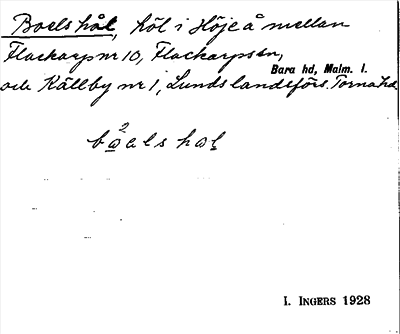 Boels hål, höl i Höje å mellan
Flackarp nr 10, Flackarps sn,
Bara hd, Malm. l.
och Källby nr 1, Lunds landsförs. Torna hd.
I. INGERS 1928